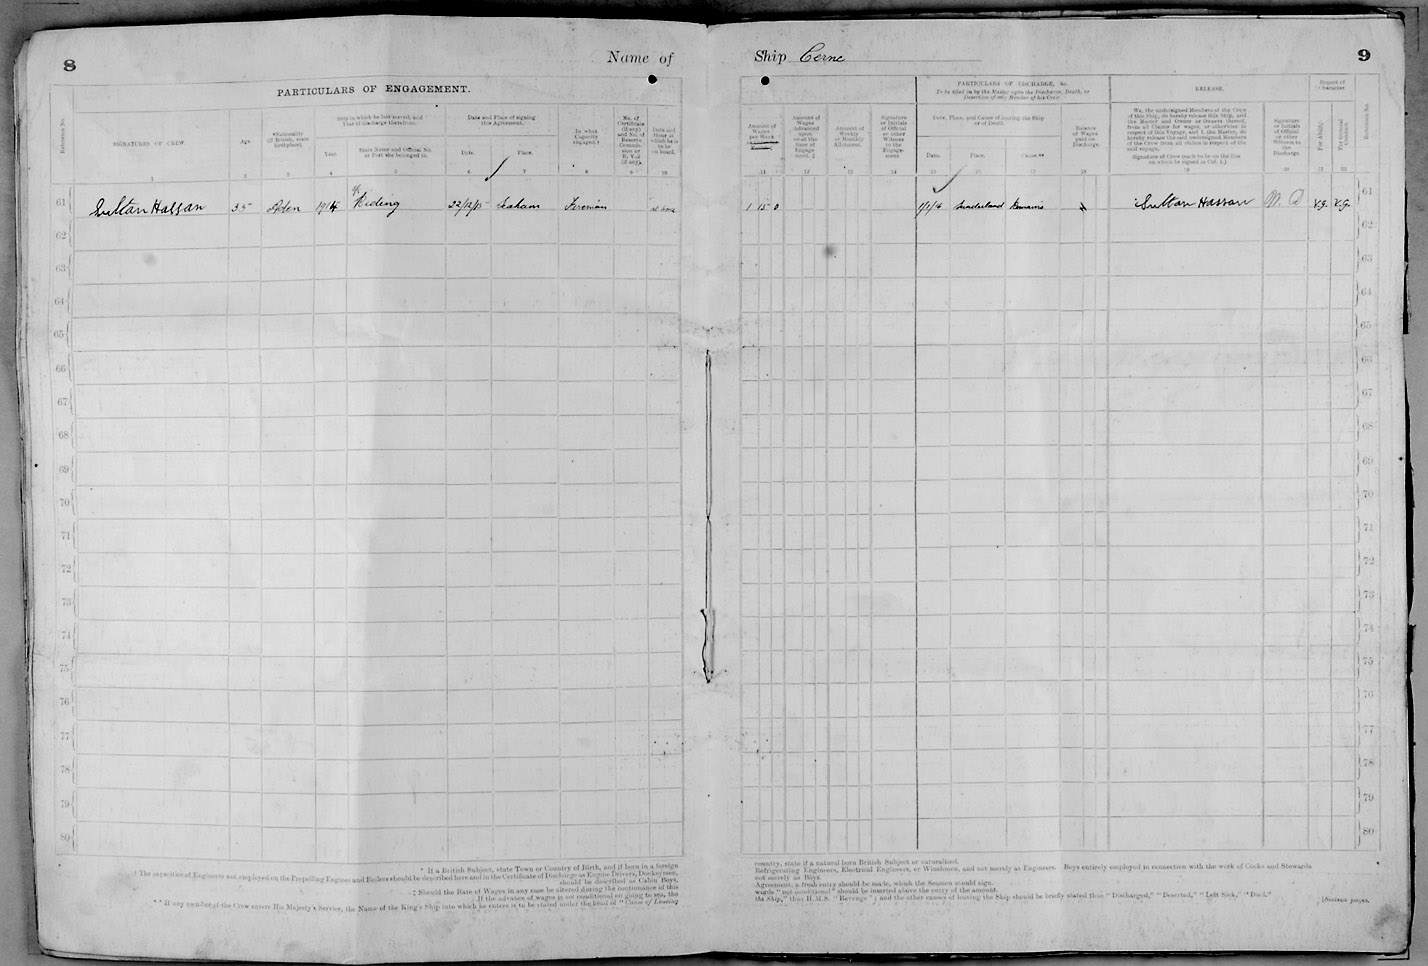 8
Name of
PARTICULARS OF ENGAGEMENT.
Reference No.
SIGNATURES OF CREW.
Age.
*Nationality
(if British, state
birthplace).
Ship in which he last served, and
Year of Discharge therefrom.
Year.
State Name and Official No.
or Port she belonged to.
Date and Place of signing
this Agreement.
Date.
Place.
In what
Capacity
engaged.†
No. of
Certificate
(if any)
and No. of
Reserve
Commis-
sion or
R. V. 2
(if any).
Date and
Hour at
which he is
to be
on board.
1 2 3 4 5 6 7 8 9 10
61 Sultan Hassan 35 Aden 1914 Riding 22/12/15 Seaham Fireman at once
62
63
64
65
66
67
68
69
70
71
72
73
74
75
76
77
78
79
80
* If a British Subject, state Town or Country of Birth, and if born in a foreign
† The capacities of Engineers not employed on the Propelling Engines and Boilers should be described here and in the Certificate of Discharge as Engine Drivers, Donkeymen,
should be described as Cabin Boys,
‡ Should the Rate of Wages in any case be altered during the continuance of this
If the advance of wages is not conditional on going to sea, the
** If any member of the Crew enters His Majesty's Service, the Name of the King's Ship into which he enters is to be stated under the head of "Cause of Leaving
Ship Cerne
9
PARTICULARS OF DISCHARGE, &c.
To be filled in by the Master upon the Discharge, Death, or
Desertion of any Member of his Crew.
RELEASE.
Report of
Character.
Amount of
Wages
per Week
Amount of
Wages
Advanced
upon
or at the
time of
Engage-
ment. ‡
Amount of
Weekly
or Monthly
Allotment.
Signature
or Initials
of Official
or other
Witness
to the
Engage-
ment
Date, Place, and Cause of leaving the Ship
or of Death.
Date.
Place.
Cause.**
Balance
of Wages
paid on
Discharge.
We, the undersigned Members of the Crew
of this Ship, do hereby release this Ship, and
the Master and Owner or Owners thereof,
from all Claims for wages, or otherwise in
respect of this Voyage, and I, the Master, do
hereby release the said undersigned Members
of the Crew from all claims in respect of the
said voyage.
Signature of Crew (each to be on the line
on which he signed in Col. 1.)
Signature
or Initials
of Official
or other
Witness to
the
Discharge.
For Ability.
For General
Conduct.
Reference No.
11 12 13 14 15 16 17 18 19 20 21 22
1 15 0 1/1/16 Sunderland Remains Sultan Hassan V.G. V.G. 61
62
63
64
65
66
67
68
69
70
71
72
73
74
75
76
77
78
79
80
country, state if a natural born British Subject or naturalised.
Refrigerating Engineers, Electrical Engineers, or Winchmen, and not merely as Engineers. Boys entirely employed in connection with the work of Cooks and Stewards
not merely as Boys.
Agreement, a fresh entry should be made, which the Seaman should sign.
words "not conditional" should be inserted above the entry of the amount.
the Ship," thus H.M.S. "Revenge"; and the other causes of leaving the Ship should be briefly stated thus "Discharged," "Deserted," "Left Sick," "Died."